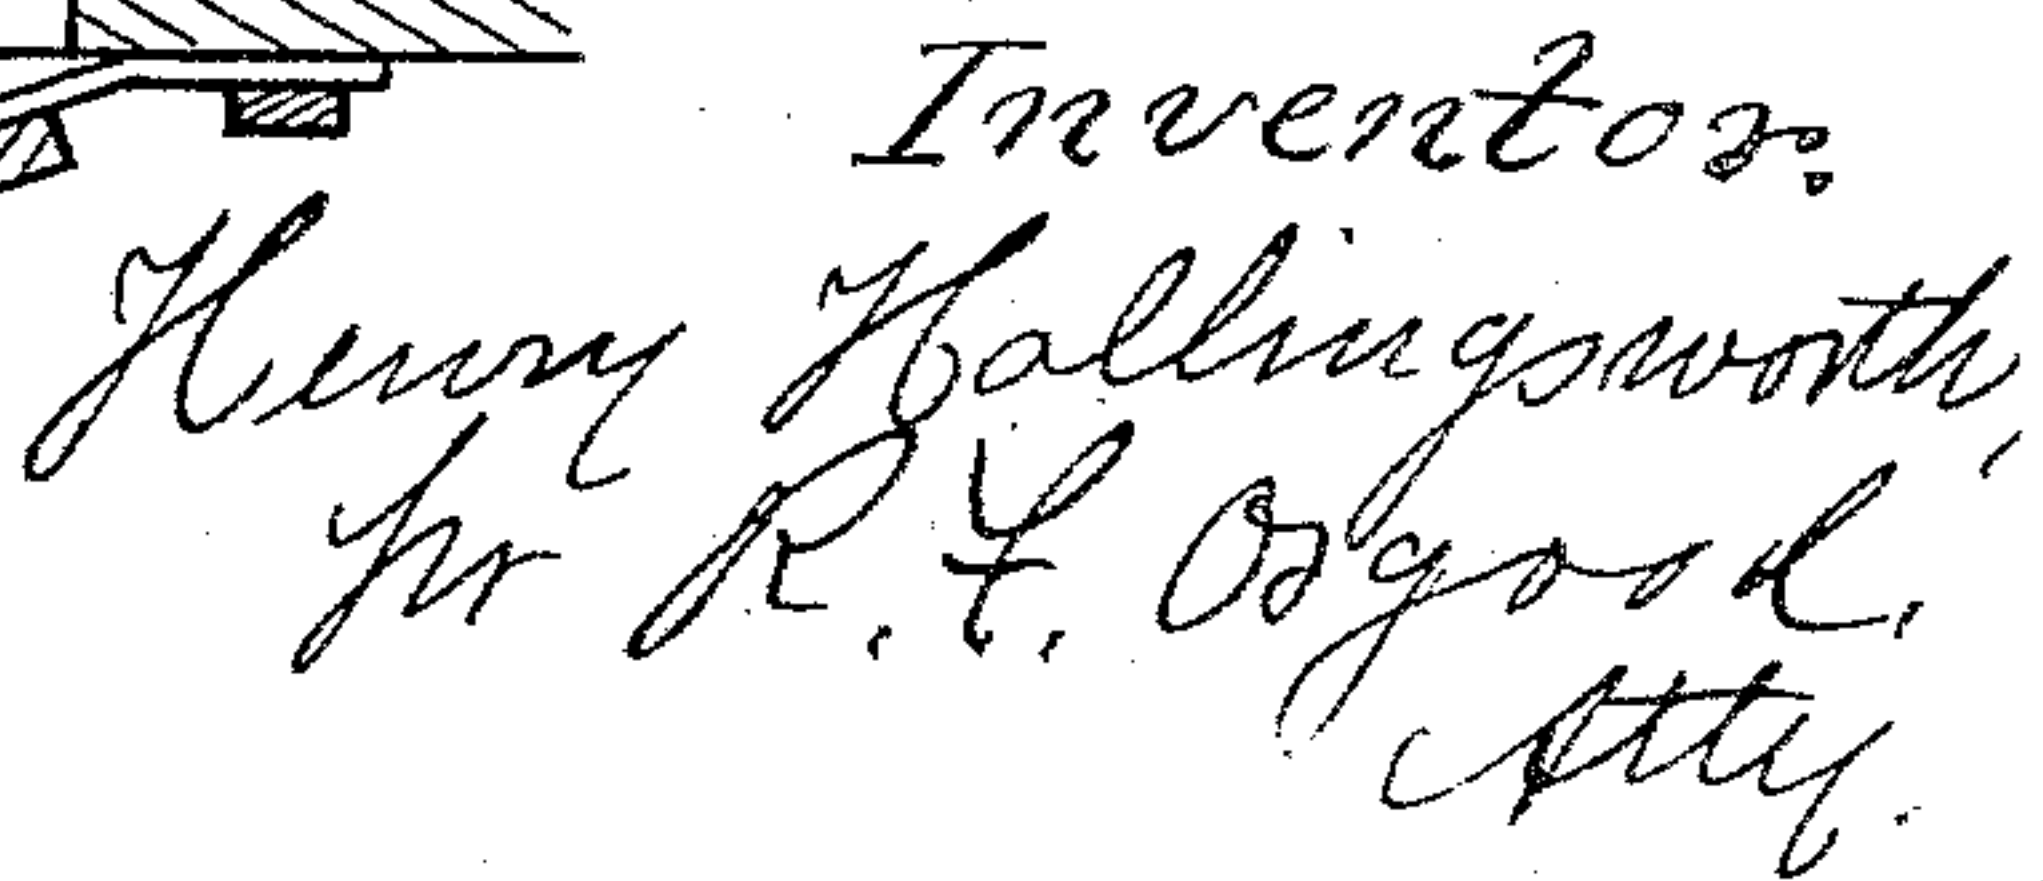 Inventor:
Henry Hollingsworth,
pr R. F. Osgood,
Atty.